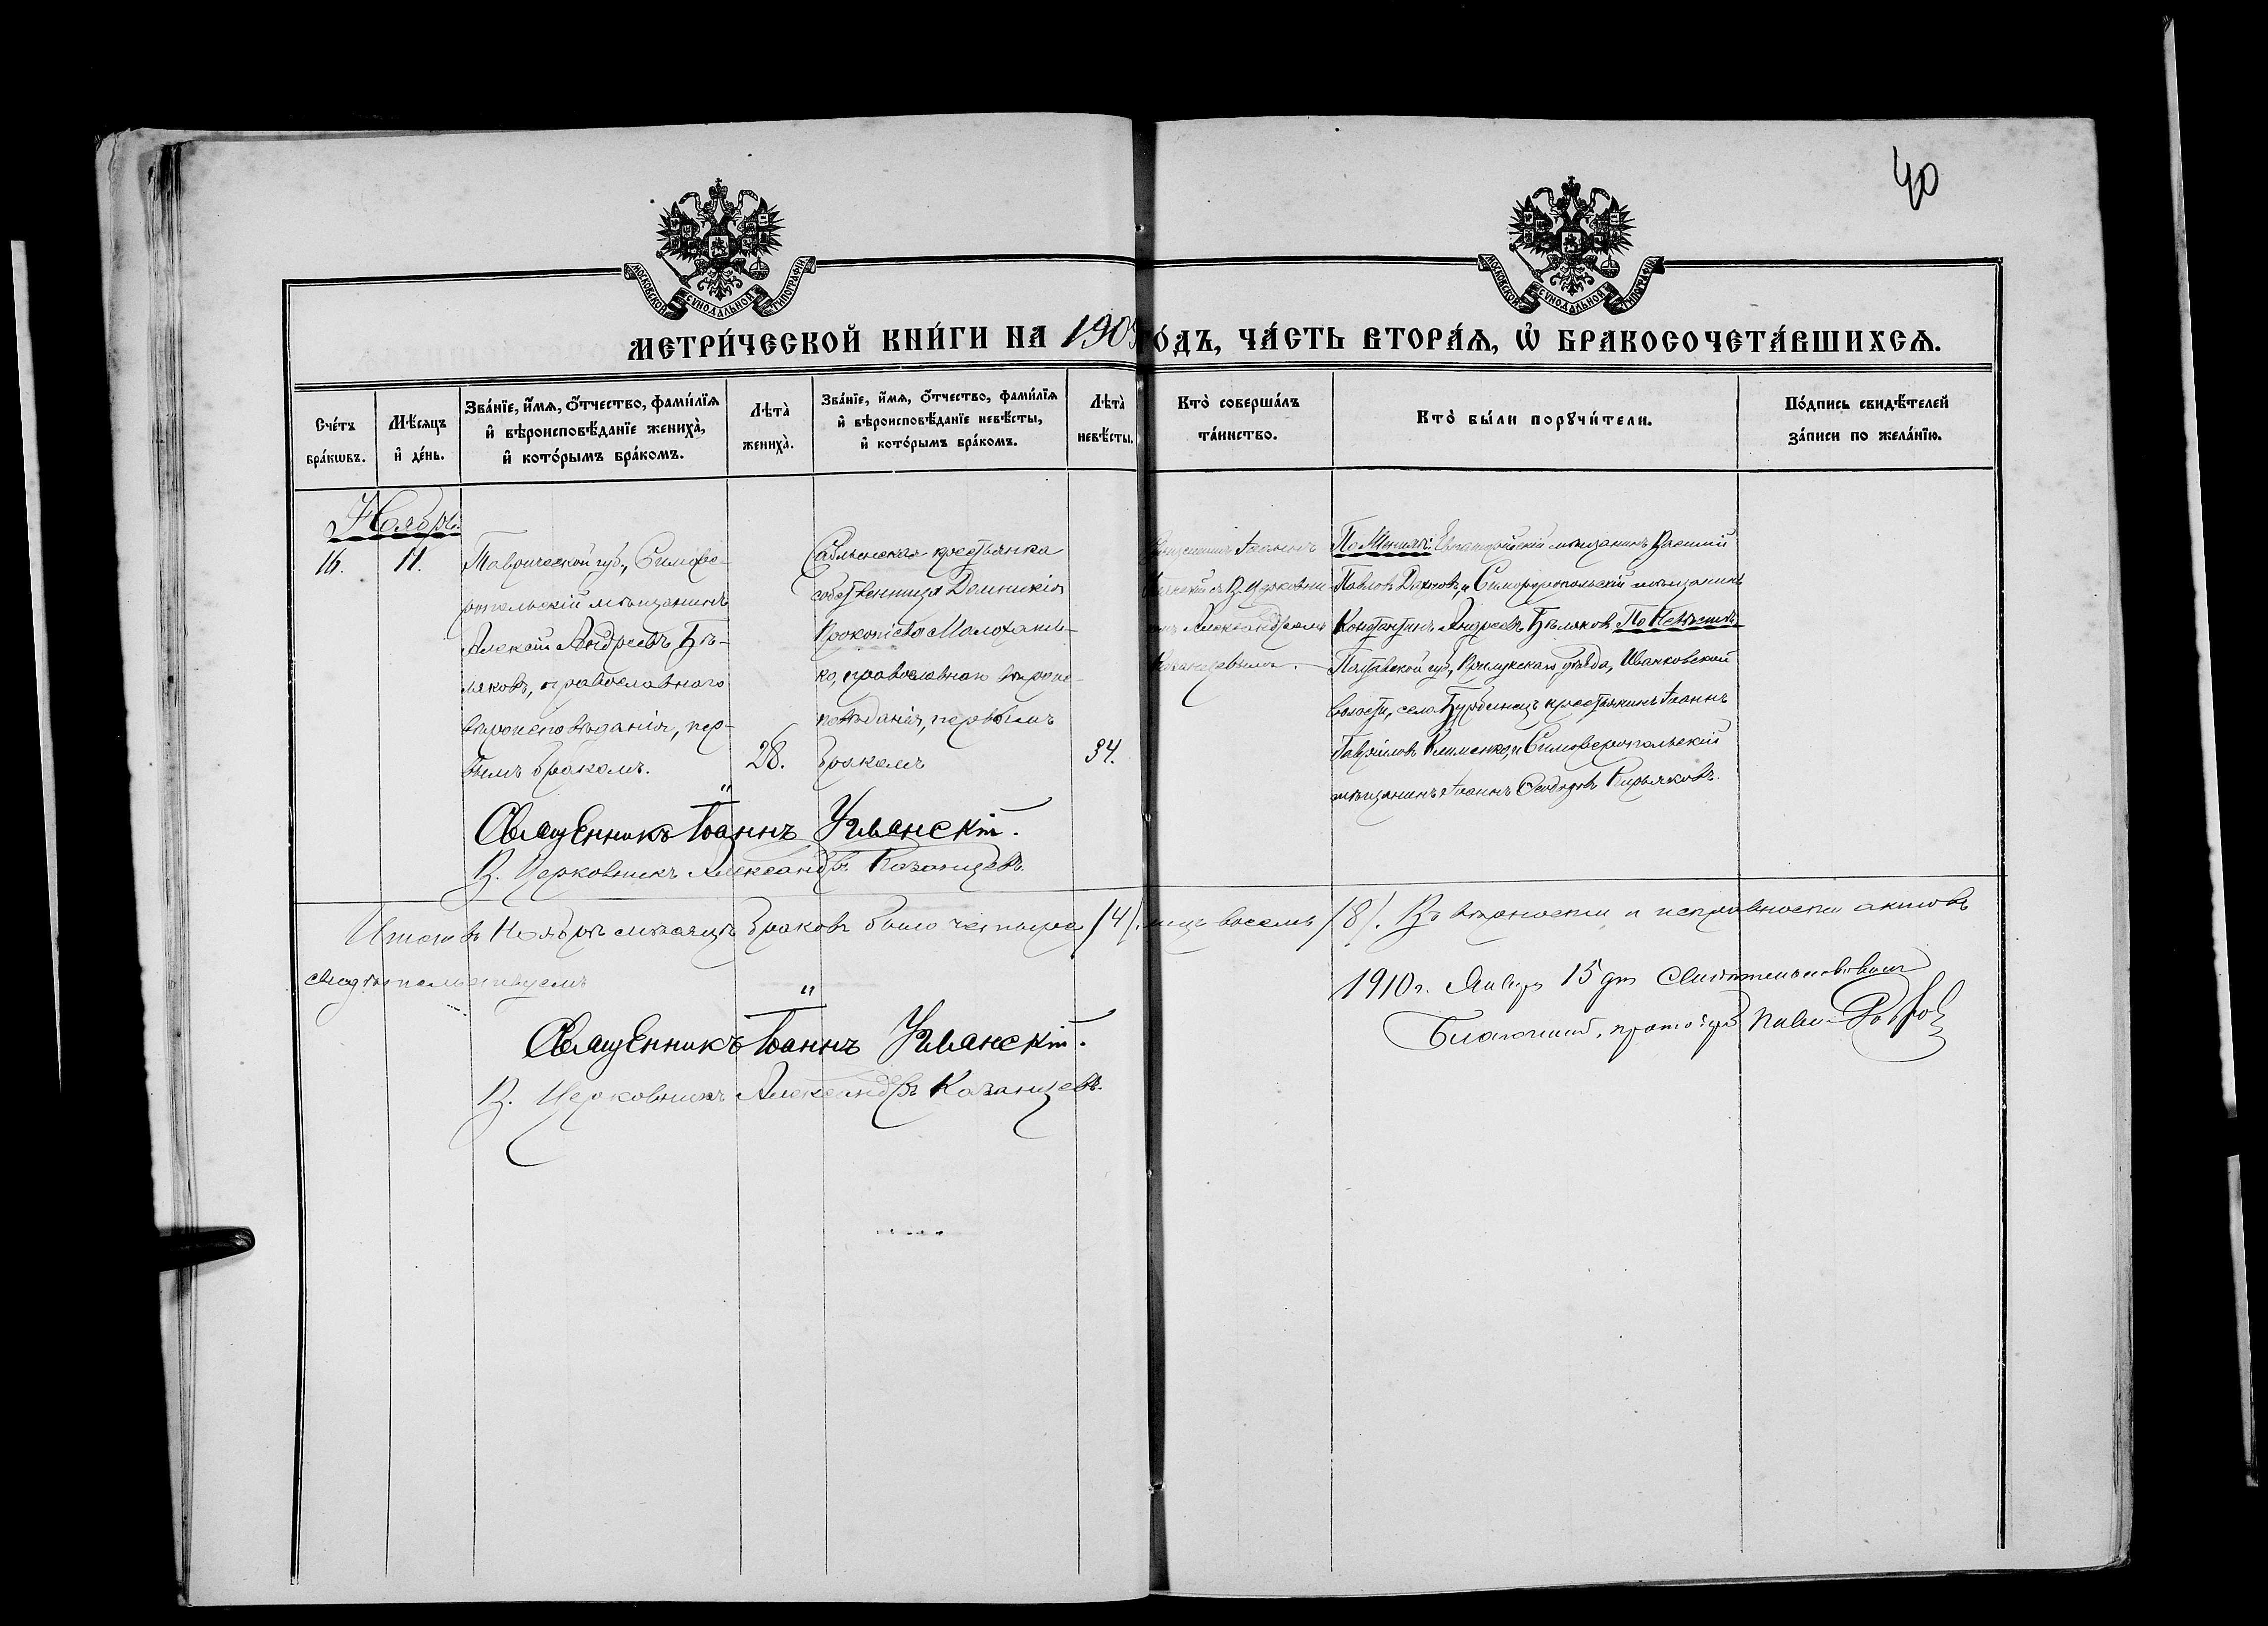 40
МОСКОВСКОЙ СѴНОДАЛЬНОЙ ТИПОГРАФІИ
МОСКОВСКОЙ СѴНОДАЛЬНОЙ ТИПОГРАФІИ
МЕТРИ́ЧЕСКОЙ КНИ́ГИ НА 1909 ГО́ДЪ, ЧА́СТЬ ВТОРА́Ѧ, Ѽ БРАКОСОЧЕТА́ВШИХСѦ.
Сче́тъ бра́кѡвъ.
Мѣ́сяцъ и҆ де́нь.
Зва́нїе, и҆́мѧ, ѻ҆́тчество, фами́лїѧ и҆ вѣроисповѣ́данїе жениха̀, и҆ кото́рымъ бра́комъ.
Лѣта̀ жениха̀.
Зва́нїе, и҆́мѧ, ѻ҆́тчество, фами́лїѧ и҆ вѣроисповѣ́данїе невѣ́сты, и҆ кото́рымъ бра́комъ.
Лѣта̀ невѣ́сты.
Кто̀ соверша́лъ та́инство.
Кто̀ бы́ли порꙋчи́тели.
По́дпись свидѣ́телей за́писи по жела́нїю.
Ноябрь.
16.
11.
Таврической губ., Симфе-
ропольскій мѣщанинъ
Алексѣй Андреевъ Бѣ-
ляковъ, православнаго
вѣроисповѣданія, пер-
вымъ бракомъ.
28.
крестьянка
собственница Домникія
Прокопіева
ко, православнаго вѣроис-
повѣданія, первымъ
бракомъ
34.
Священникъ Іоаннъ
Уманскій и В. Церковни-
комъ Александромъ
Казанцевымъ.
По Женихѣ: Евпаторійскій мѣщанинъ Василій
Павловъ и Симферопольскій мѣщанинъ
Константинъ Андреевъ Бѣляковъ По Невѣстѣ:
Полтавской губ., Прилукскаго уѣзда, Иванковской
волости, села крестьянинъ Іоаннъ
Гавріиловъ Клименко, и Симферопольскій
мѣщанинъ Іоаннъ Ѳеодоровъ Кирьяковъ.
Священникъ Іоаннъ Уманскій.
В. Церковникъ Александръ Казанцевъ.
Итого въ Ноябрѣ мѣсяцѣ браковъ было четыре /4/. лицъ восемь /8/. Въ вѣрности и исправности актовъ
свидѣтельствуемъ
Священникъ Іоаннъ Уманскій.
В. Церковникъ Александръ Казанцевъ.
1910 г. Января 15 дня
Благочинный, протоіерей Павелъ